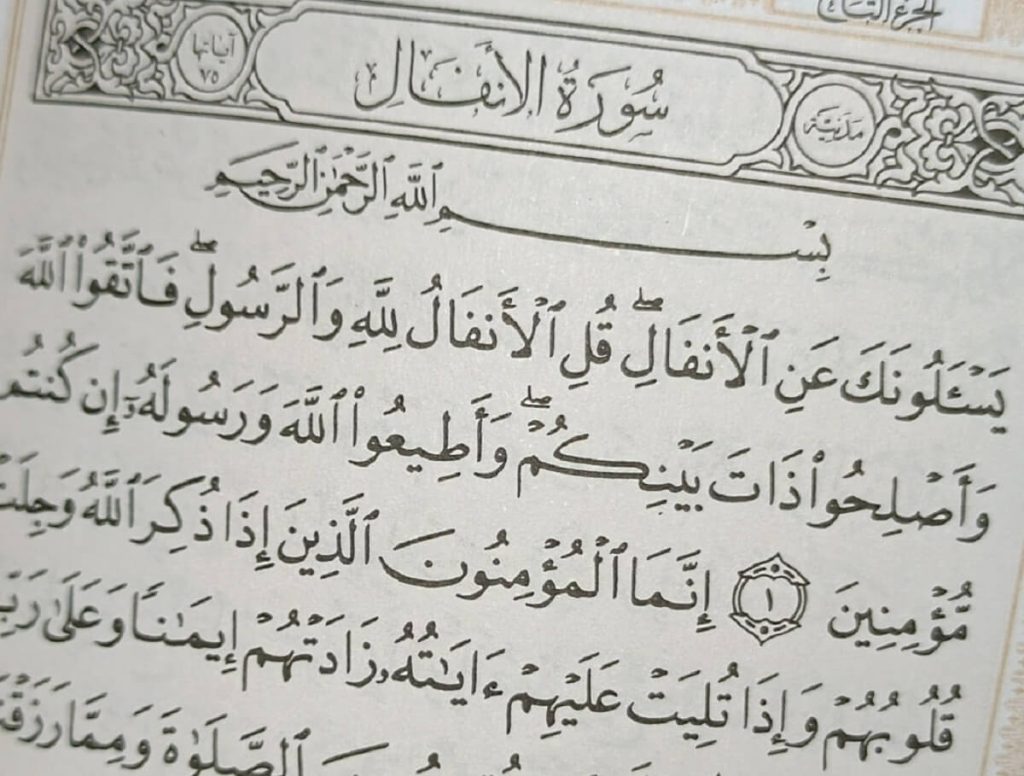 الجزء التاسع
مدنية سُورَةُ الأنفَالِ آياتها ٧٥
بِسْمِ ٱللَّهِ ٱلرَّحْمَٰنِ ٱلرَّحِيمِ
يَسْـَٔلُونَكَ عَنِ ٱلْأَنفَالِۖ قُلِ ٱلْأَنفَالُ لِلَّهِ وَٱلرَّسُولِۖ فَٱتَّقُوا۟ ٱللَّهَ
وَأَصْلِحُوا۟ ذَاتَ بَيْنِكُمْۖ وَأَطِيعُوا۟ ٱللَّهَ وَرَسُولَهُۥٓ إِن كُنتُم
مُّؤْمِنِينَ ١ إِنَّمَا ٱلْمُؤْمِنُونَ ٱلَّذِينَ إِذَا ذُكِرَ ٱللَّهُ وَجِلَتْ
قُلُوبُهُمْ وَإِذَا تُلِيَتْ عَلَيْهِمْ ءَايَٰتُهُۥ زَادَتْهُمْ إِيمَٰنًا وَعَلَىٰ
ٱلصَّلَوٰةَ وَمِمَّا